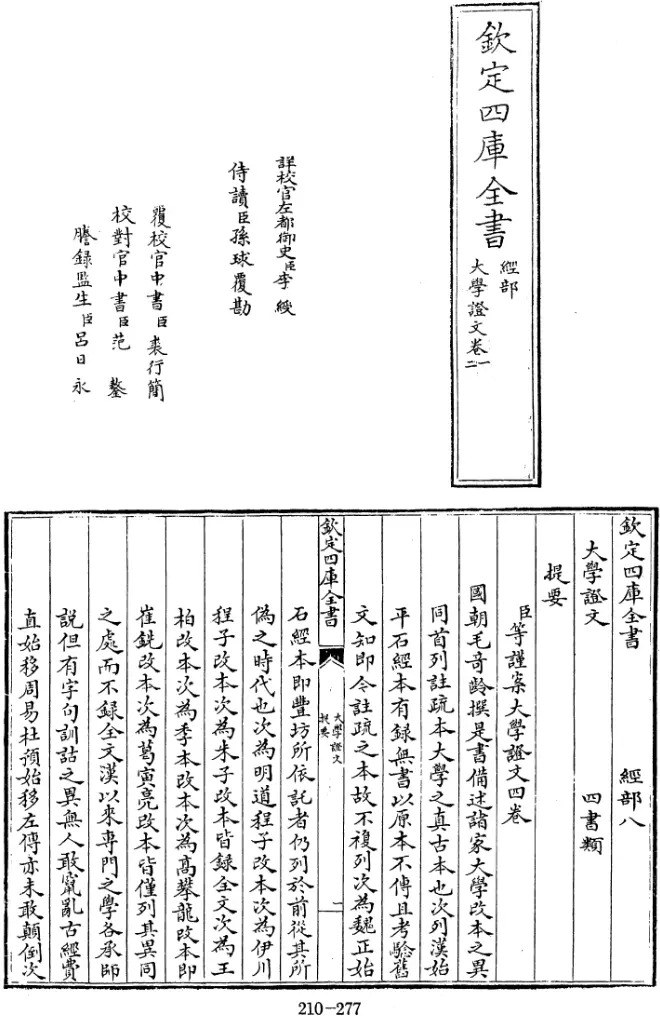 欽定四庫全書
經部
大學證文卷一
二
詳校官左都御史臣李綬
侍讀臣孫球覆勘
覆校官中書臣裘行簡
校對官中書臣范鏊
謄錄監生臣呂日永
欽定四庫全書 經部八
大學證文 四書類
提要
臣等謹案大學證文四卷
國朝毛奇齡撰是書備述諸家大學改本之異
同首列註疏本大學之真古本也次列漢始
平石經本有録無書以原本不傳且考驗舊
文知即今註疏之本故不複列次為魏正始
欽定四庫全書
大學證文
提要
一
石經本即豐坊所依託者仍列於前從其所
偽之時代也次為明道程子改本次為伊川
程子改本次為朱子改本皆録全文次為王
柏改本次為季本改本次為高攀龍改本即
崔銑改本次為葛寅亮改本皆僅列其異同
之處而不録全文漢以來專門之學各承師
說但有字句訓詁之異無人敢竄亂古經費
直始移周易杜預始移左傳亦未敢顛倒次
210-277